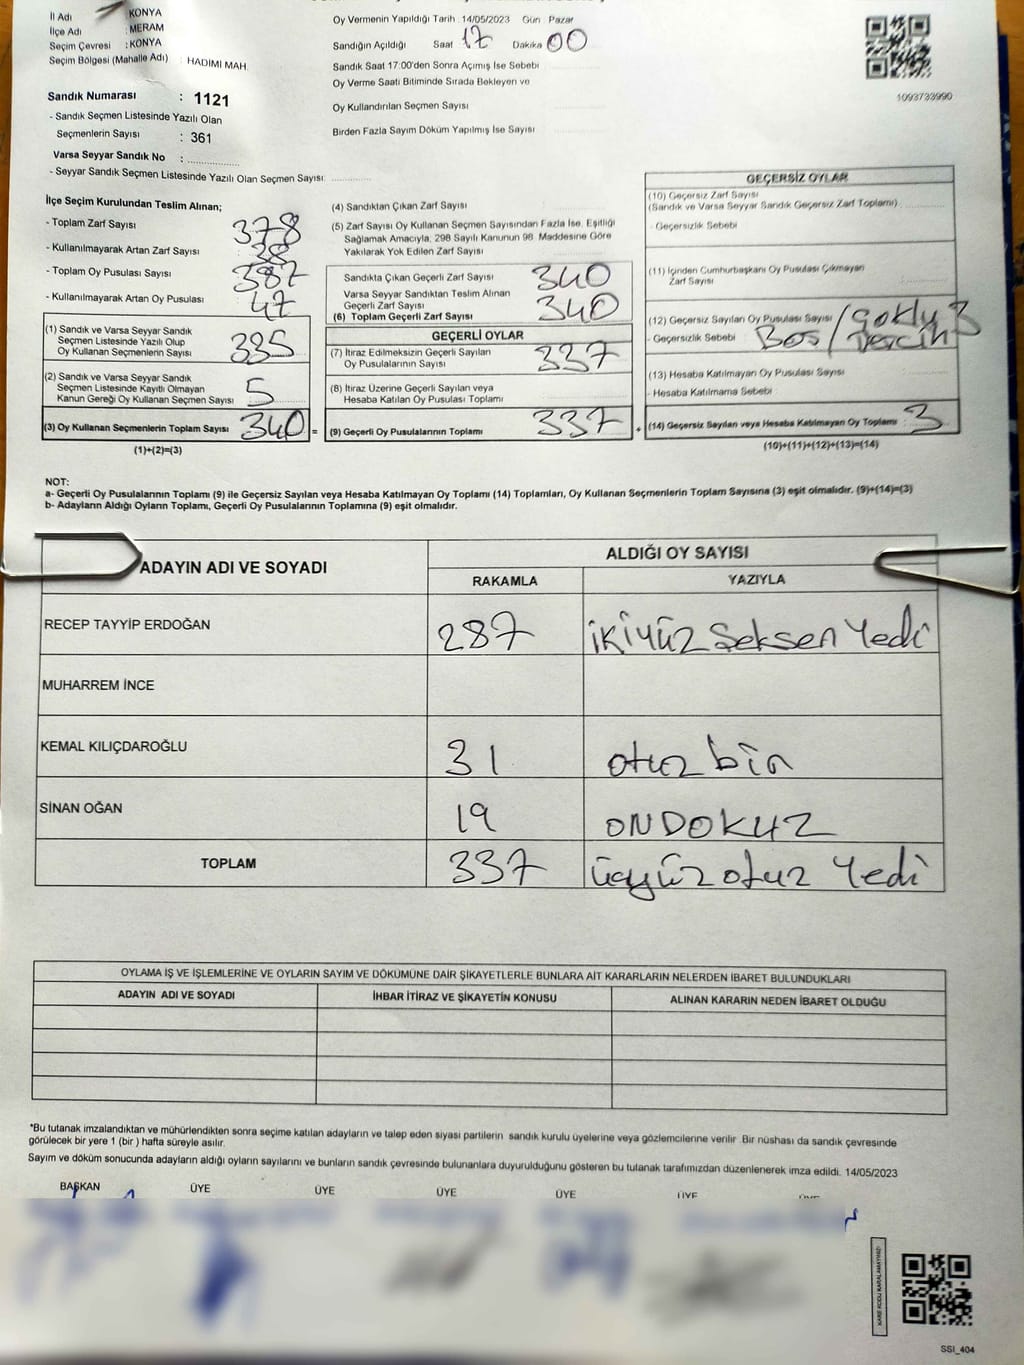 İl Adı : KONYA
İlçe Adı : MERAM
Seçim Çevresi : KONYA
Seçim Bölgesi (Mahalle Adı) : HADIMI MAH.
Sandık Numarası : 1121
- Sandık Seçmen Listesinde Yazılı Olan
Seçmenlerin Sayısı : 361
Varsa Seyyar Sandık No :
- Seyyar Sandık Seçmen Listesinde Yazılı Olan Seçmen Sayısı:
Oy Vermenin Yapıldığı Tarih : 14/05/2023 Gün : Pazar
Sandığın Açıldığı Saat 17 Dakika 00
Sandık Saat 17:00'den Sonra Açımış İse Sebebi
Oy Verme Saati Bitiminde Sırada Bekleyen ve
Oy Kullandırılan Seçmen Sayısı
Birden Fazla Sayım Döküm Yapılmış İse Sayısı
1093733990
İlçe Seçim Kurulundan Teslim Alınan;
- Toplam Zarf Sayısı 378
- Kullanılmayarak Artan Zarf Sayısı 38
- Toplam Oy Pusulası Sayısı 387
- Kullanılmayarak Artan Oy Pusulası 47
(1) Sandık ve Varsa Seyyar Sandık
Seçmen Listesinde Yazılı Olup
Oy Kullanan Seçmenlerin Sayısı 335
(2) Sandık ve Varsa Seyyar Sandık
Seçmen Listesinde Kayıtlı Olmayan
Kanun Gereği Oy Kullanan Seçmen Sayısı 5
(3) Oy Kullanan Seçmenlerin Toplam Sayısı 340 =
(1)+(2)=(3)
(4) Sandıktan Çıkan Zarf Sayısı
(5) Zarf Sayısı Oy Kullanan Seçmen Sayısından Fazla İse, Eşitliği
Sağlamak Amacıyla, 298 Sayılı Kanunun 98. Maddesine Göre
Yakılarak Yok Edilen Zarf Sayısı
Sandıkta Çıkan Geçerli Zarf Sayısı 340
Varsa Seyyar Sandıktan Teslim Alınan
Geçerli Zarf Sayısı
(6) Toplam Geçerli Zarf Sayısı 340
GEÇERLİ OYLAR
(7) İtiraz Edilmeksizin Geçerli Sayılan
Oy Pusulalarının Sayısı 337
(8) İtiraz Üzerine Geçerli Sayılan veya
Hesaba Katılan Oy Pusulası Toplamı
(9) Geçerli Oy Pusulalarının Toplamı 337 +
GEÇERSİZ OYLAR
(10) Geçersiz Zarf Sayısı
(Sandık ve Varsa Seyyar Sandık Geçersiz Zarf Toplamı)
- Geçersizlik Sebebi
(11) İçinden Cumhurbaşkanı Oy Pusulası Çıkmayan
Zarf Sayısı
(12) Geçersiz Sayılan Oy Pusulası Sayısı 3
- Geçersizlik Sebebi Boş / Çoklu Tercih
(13) Hesaba Katılmayan Oy Pusulası Sayısı
- Hesaba Katılmama Sebebi
(14) Geçersiz Sayılan veya Hesaba Katılmayan Oy Toplamı : 3
(10)+(11)+(12)+(13)=(14)
NOT:
a- Geçerli Oy Pusulalarının Toplamı (9) ile Geçersiz Sayılan veya Hesaba Katılmayan Oy Toplamı (14) Toplamları, Oy Kullanan Seçmenlerin Toplam Sayısına (3) eşit olmalıdır. (9)+(14)=(3)
b- Adayların Aldığı Oyların Toplamı, Geçerli Oy Pusulalarının Toplamına (9) eşit olmalıdır.
ADAYIN ADI VE SOYADI
ALDIĞI OY SAYISI
RAKAMLA YAZIYLA
RECEP TAYYİP ERDOĞAN 287 İKİYÜZ Seksen Yedi
MUHARREM İNCE
KEMAL KILIÇDAROĞLU 31 otuz bir
SİNAN OĞAN 19 ONDOKUZ
TOPLAM 337 üçyüz otuz Yedi
OYLAMA İŞ VE İŞLEMLERİNE VE OYLARIN SAYIM VE DÖKÜMÜNE DAİR ŞİKAYETLERLE BUNLARA AİT KARARLARIN NELERDEN İBARET BULUNDUKLARI
ADAYIN ADI VE SOYADI İHBAR İTİRAZ VE ŞİKAYETİN KONUSU ALINAN KARARIN NEDEN İBARET OLDUĞU
*Bu tutanak imzalandıktan ve mühürlendikten sonra seçime katılan adayların ve talep eden siyasi partilerin sandık kurulu üyelerine veya gözlemcilerine verilir. Bir nüshası da sandık çevresinde
görülecek bir yere 1 (bir ) hafta süreyle asılır.
Sayım ve döküm sonucunda adayların aldığı oyların sayılarını ve bunların sandık çevresinde bulunanlara duyurulduğunu gösteren bu tutanak tarafımızdan düzenlenerek imza edildi. 14/05/2023
BAŞKAN ÜYE ÜYE ÜYE ÜYE ÜYE
KARE KODU KARALAMAYINIZ!
SSI_404